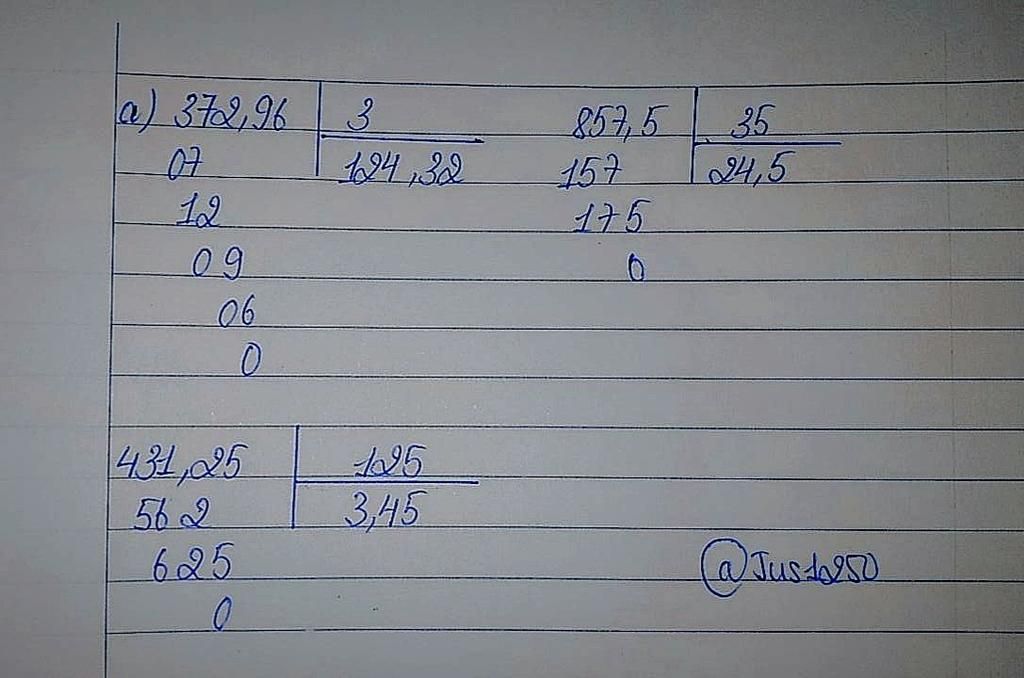 a) 372,96 3 857,5 35
07 124,32 157 24,5
12 175
09 0
06
0
431,25 125
562 3,45
625
0
@Jus1250